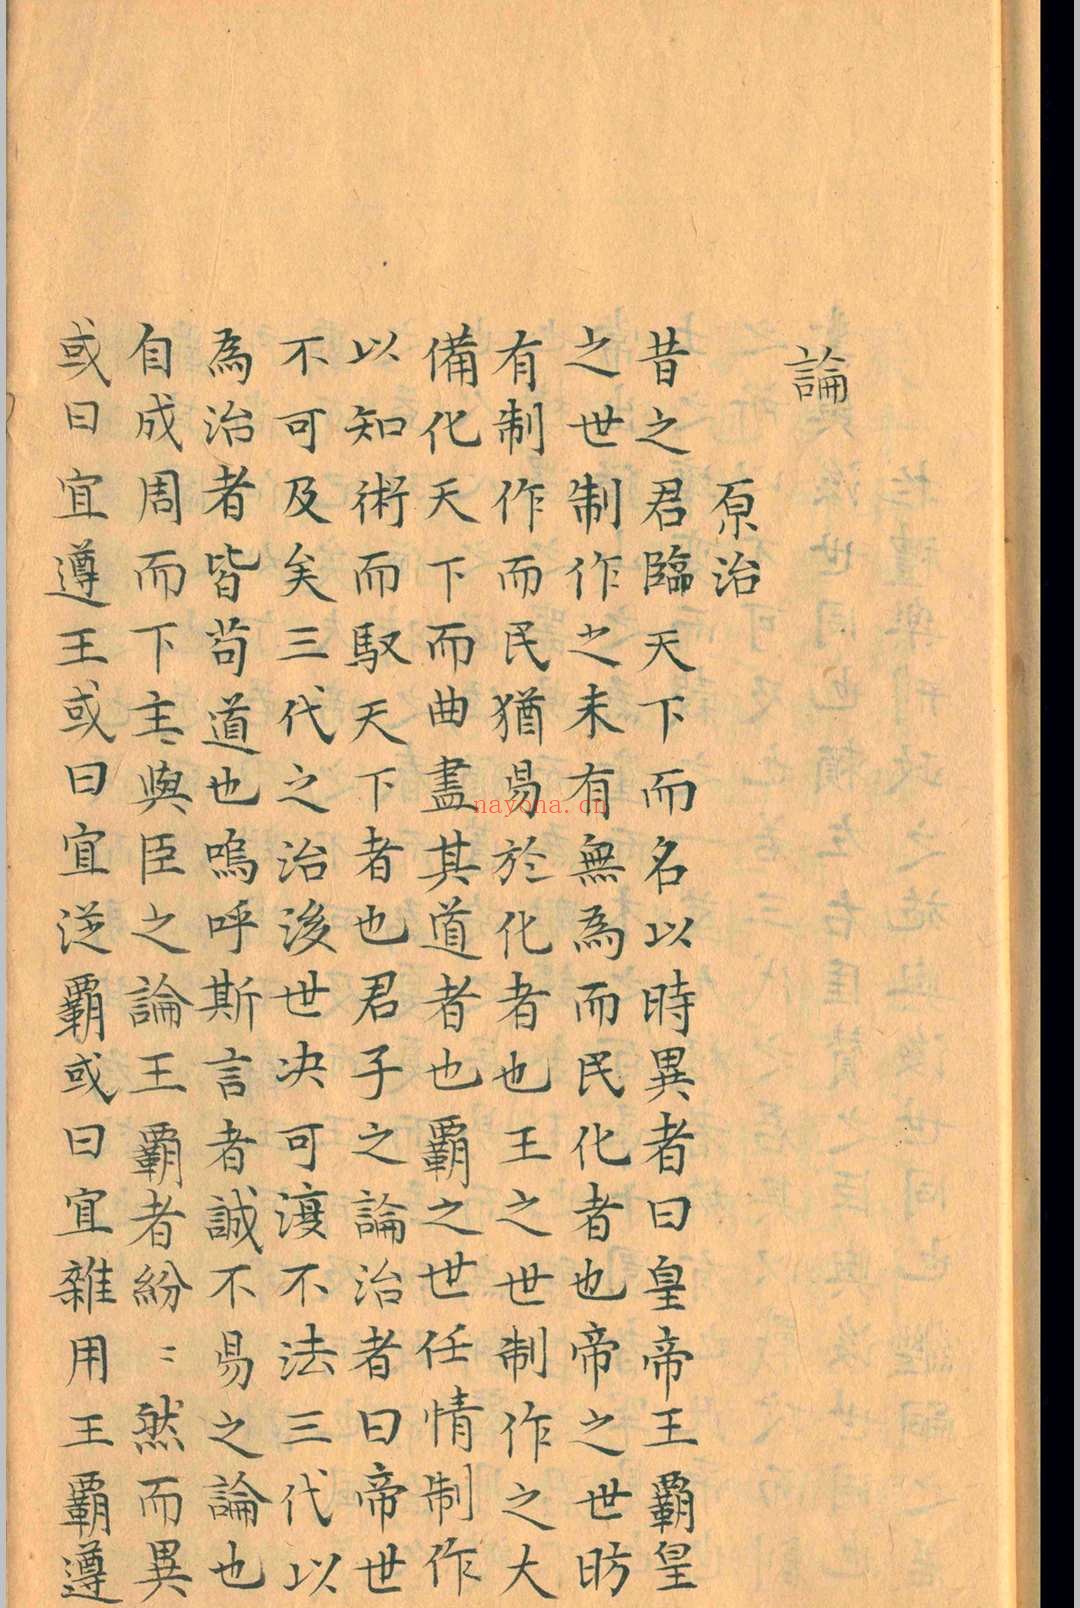 論
原治
昔之君臨天下而名以時異者曰皇帝王覇皇
之世制作之未有無為而民化者也帝之世昉
有制作而民猶易於化者也王之世制作之大
備化天下而曲盡其道者也覇之世任情制作
以知術而馭天下者也君子之論治者曰帝世
不可及矣三代之治後世决可復不法三代以
為治者皆苟道也嗚呼斯言者誠不易之論也
自成周而下主〻與臣之論王覇者紛〻然而異
或曰宜遵王或曰宜從覇或曰宜雜用王覇遵
nayona.cn